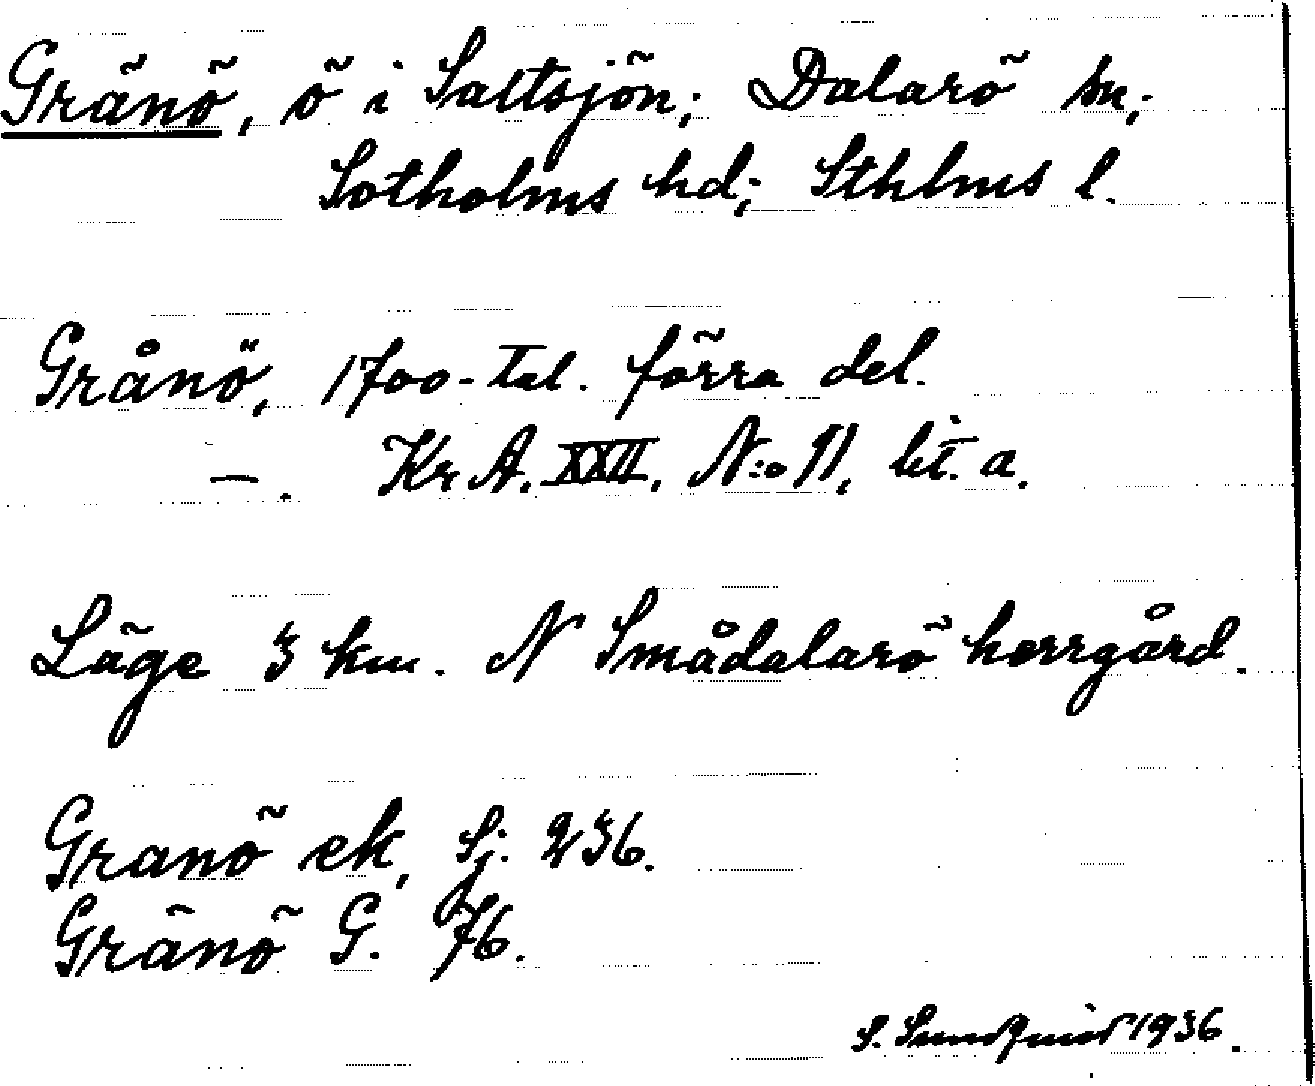 Gränö, ö i Saltsjön; Dalarö sn;
Sotholms hd; Sthlms l.
Grånö, 1700-tal. förra del.
—. Kr.A. XXII. N:o 11, lit. a.
Läge 3 km. N Smådalarö herrgård.
Granö ek, Sj. 236.
Gränö G. 76.
S. Sundquist 1936.